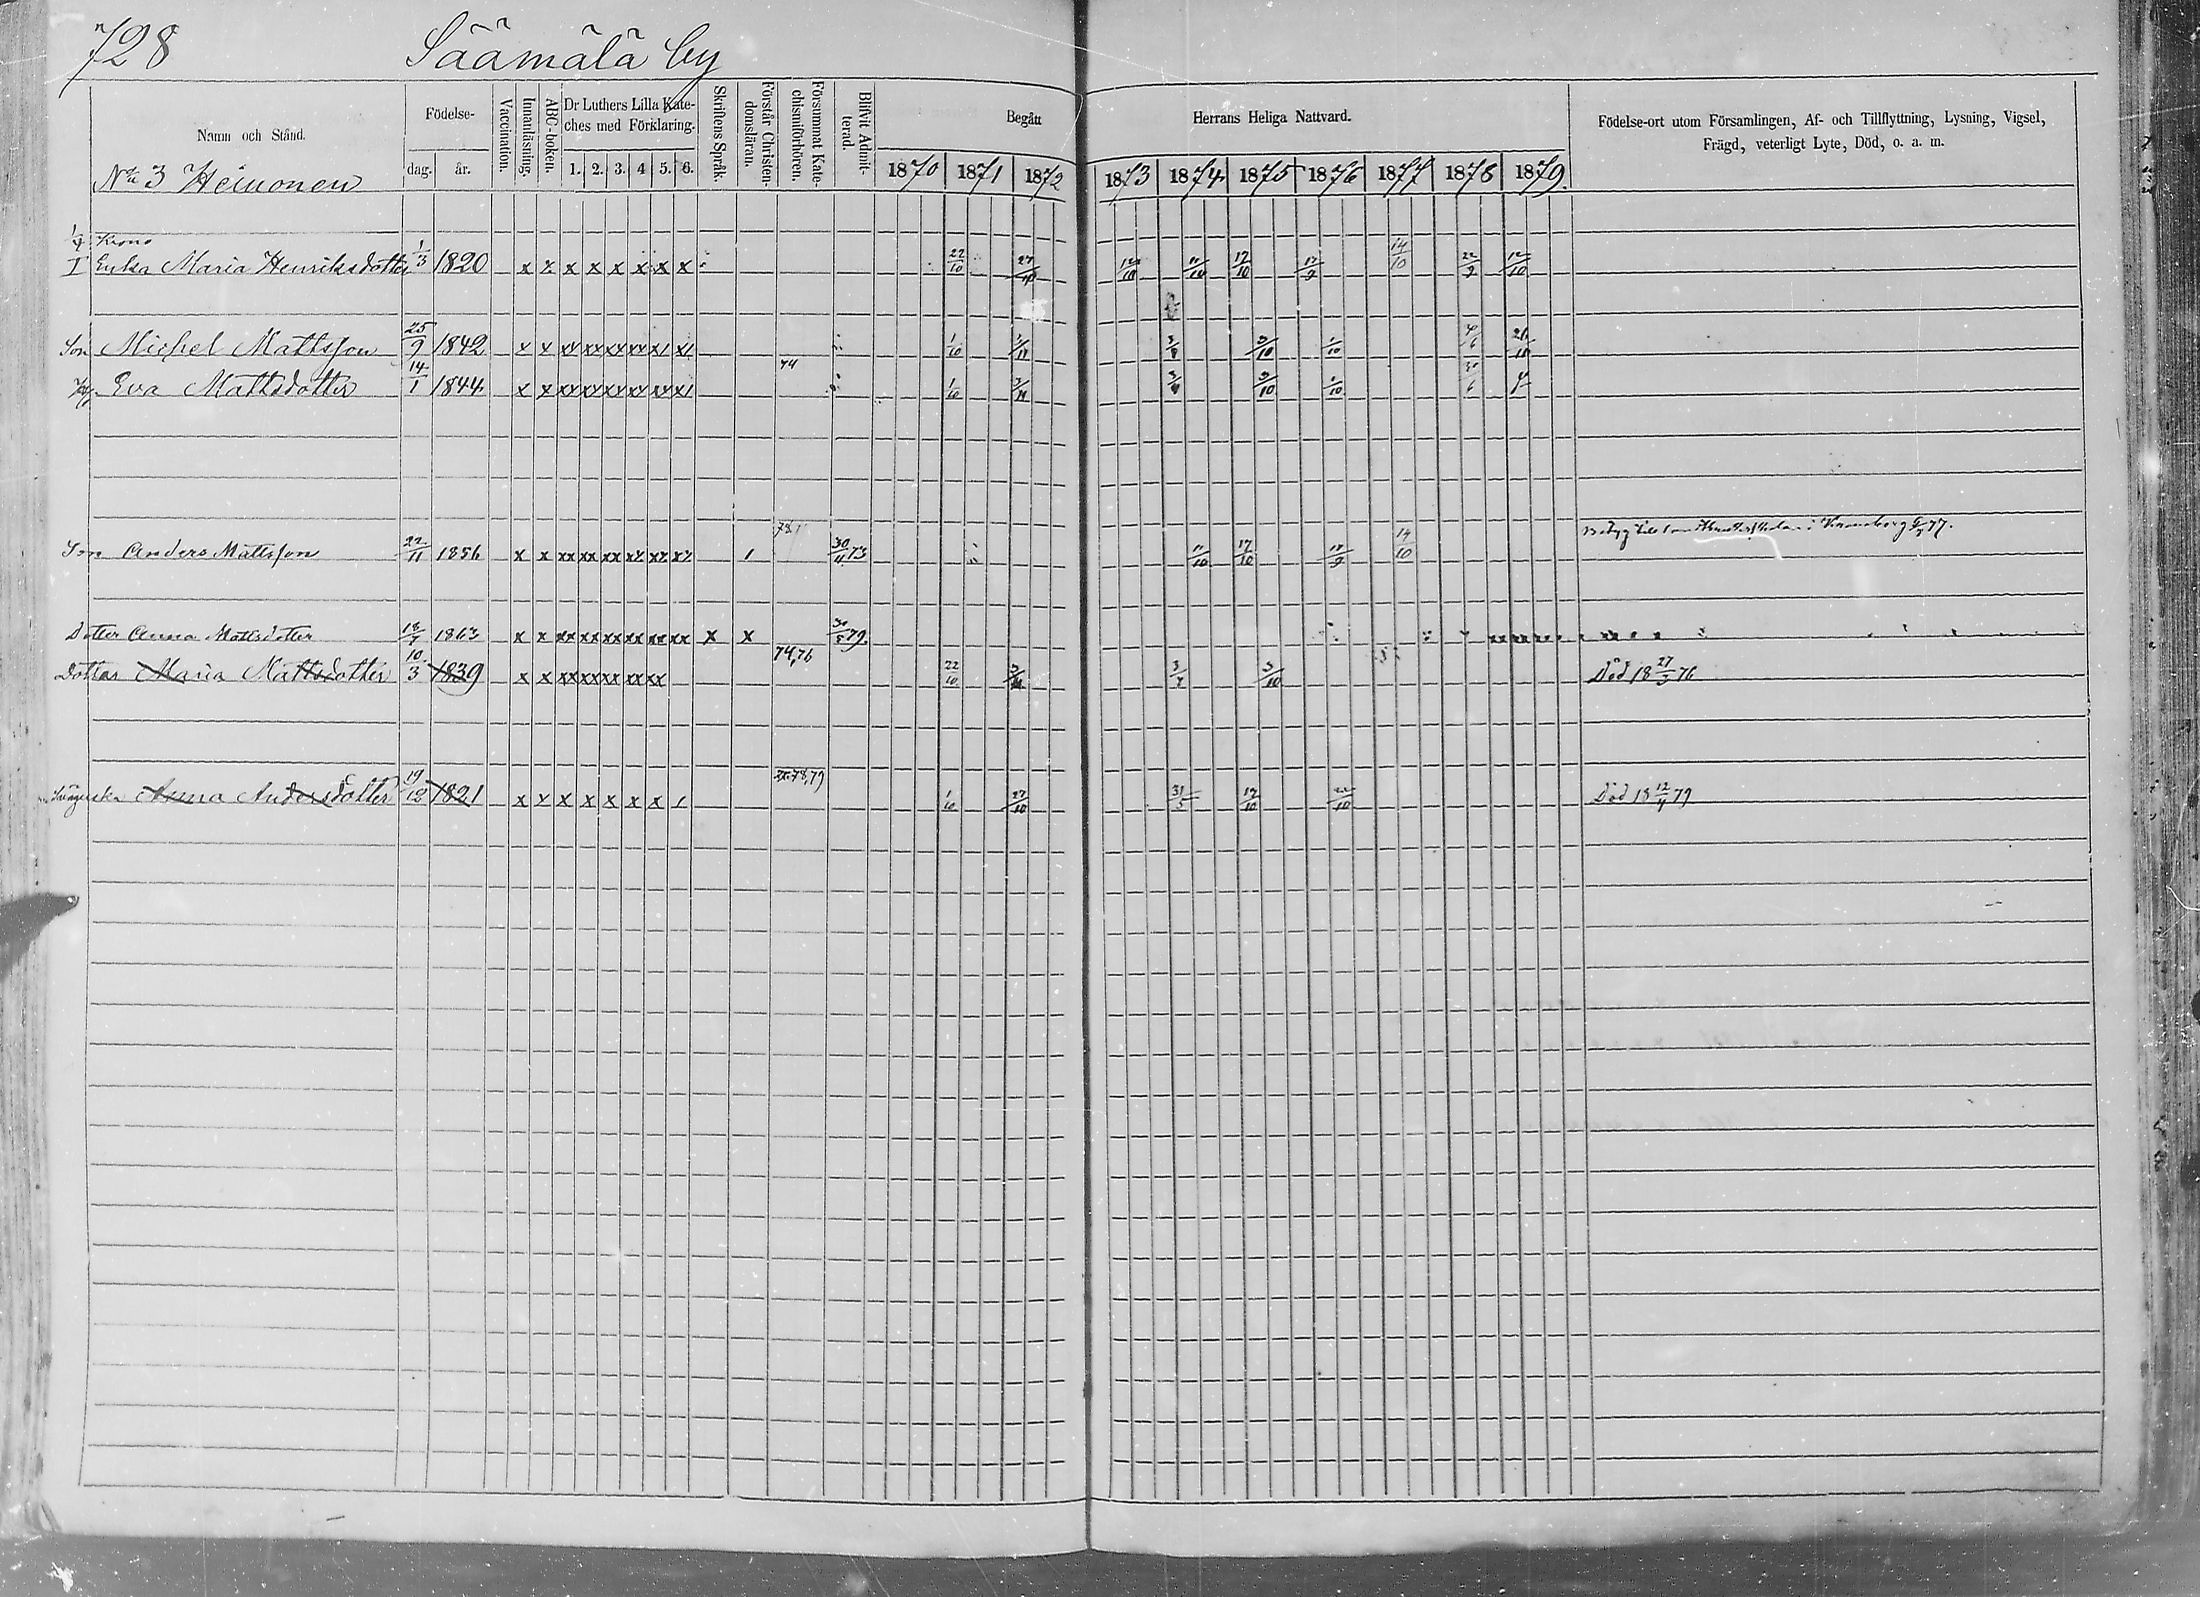 728 Säämälä by
Namn och Stånd.
Födelse-
dag. år.
Vaccination.
Innanläsning.
ABC-boken.
Dr Luthers Lilla Kate-
ches med Förklaring.
1. 2. 3. 4 5. 6.
Skriftens Språk.
Förstår Christen-
domsläran.
Försummat Kate-
chismiförhören.
Blifvit Admit-
terad.
Begått Herrans Heliga Nattvard.
1870 1871 1872 1873 1874 1875 1876 1877 1878 1879.
Födelse-ort utom Församlingen, Af- och Tillflyttning, Lysning, Vigsel,
Frägd, veterligt Lyte, Död, o. a. m.
No 3 Heinonen
Krono
Maria Henriksdotter 1/3 1820 x x x x x x x x 22/10 27/10 12/10 11/10 17/10 14/10 22/9 12/10
Son Michel Mattsson 25/9 1842 x x xx xx xx xx 1/10 3/10 1/10
Eva Mattsdotter 14/1 1844 x x xx xx xx xx 1/10 3/10 1/10 30/6
Son Anders Mattsson 22/11 1856 x x xx xx xx xx xx xx 1 30/11 73 11/10 17/10 14/10
Dotter Anna Mattsdotter 18/7 1863 x x xx xx xx xx xx xx x x 79
Dotter Maria Mattsdotter 10/3 1839 x x xx xx xx xx xx 74,76 22/10 3/10 Död 18 27/3 76
Anna Andersdotter 19/12 1821 x x x x x x x 1 78,79 1/10 27/10 31/5 Död 18 12/4 79